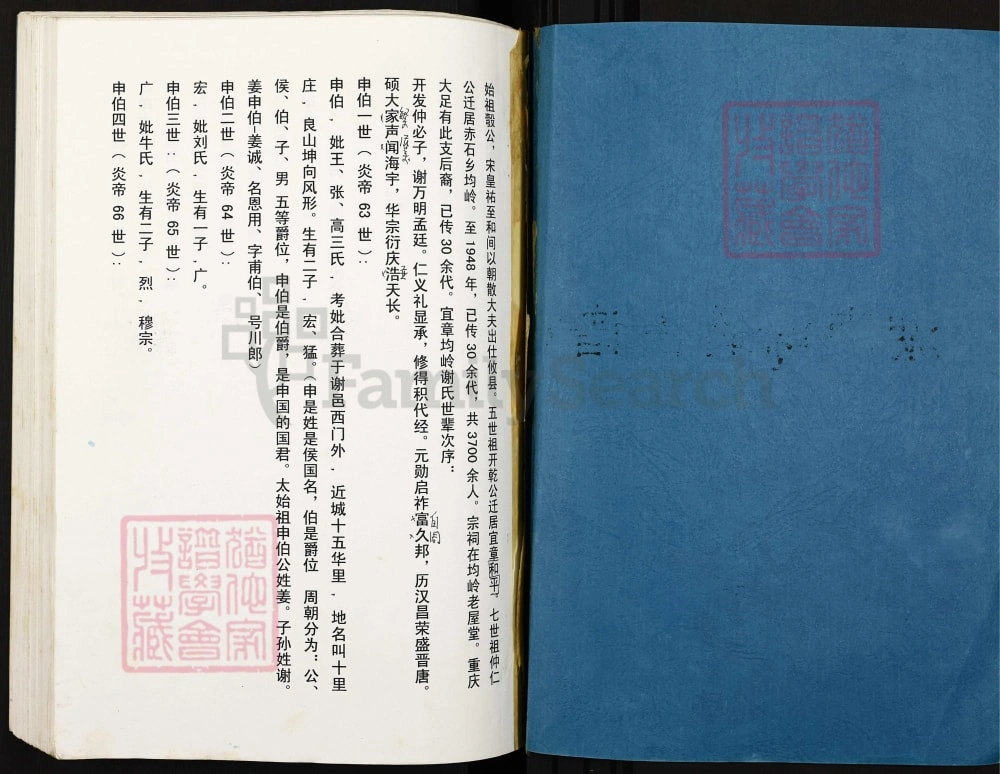 始祖彀公，宋皇祐至和间以朝散大夫出仕攸县。五世祖开乾公迁居宜章和平。七世祖仲仁
公迁居赤石乡均岭。至 1948 年，已传 30 余代，共 3700 余人。宗祠在均岭老屋堂。重庆
大足有此支后裔，已传 30 余代。宜章均岭谢氏世辈次序：
开发仲必子，谢万明孟廷。仁义礼显承，修得积代经。元勋启祚富久邦，历汉昌荣盛晋唐。
硕大家声闻海宇，华宗衍庆浩天长。
申伯一世（炎帝 63 世）：
申伯，妣王、张、高三氏，考妣合葬于谢邑西门外，近城十五华里，地名叫十里
庄，艮山坤向风形。生有二子，宏、猛。（申是姓是侯国名，伯是爵位 周朝分为：公、
侯、伯、子、男 五等爵位，申伯是伯爵，是申国的国君。太始祖申伯公姓姜。子孙姓谢。
姜申伯-姜诚、名恩用、字甫伯、号川郎）
申伯二世（炎帝 64 世）：
宏，妣刘氏，生有一子，广。
申伯三世：（炎帝 65 世）：
广，妣牛氏，生有二子，烈，穆宗。
申伯四世（炎帝 66 世）：
FamilySearch